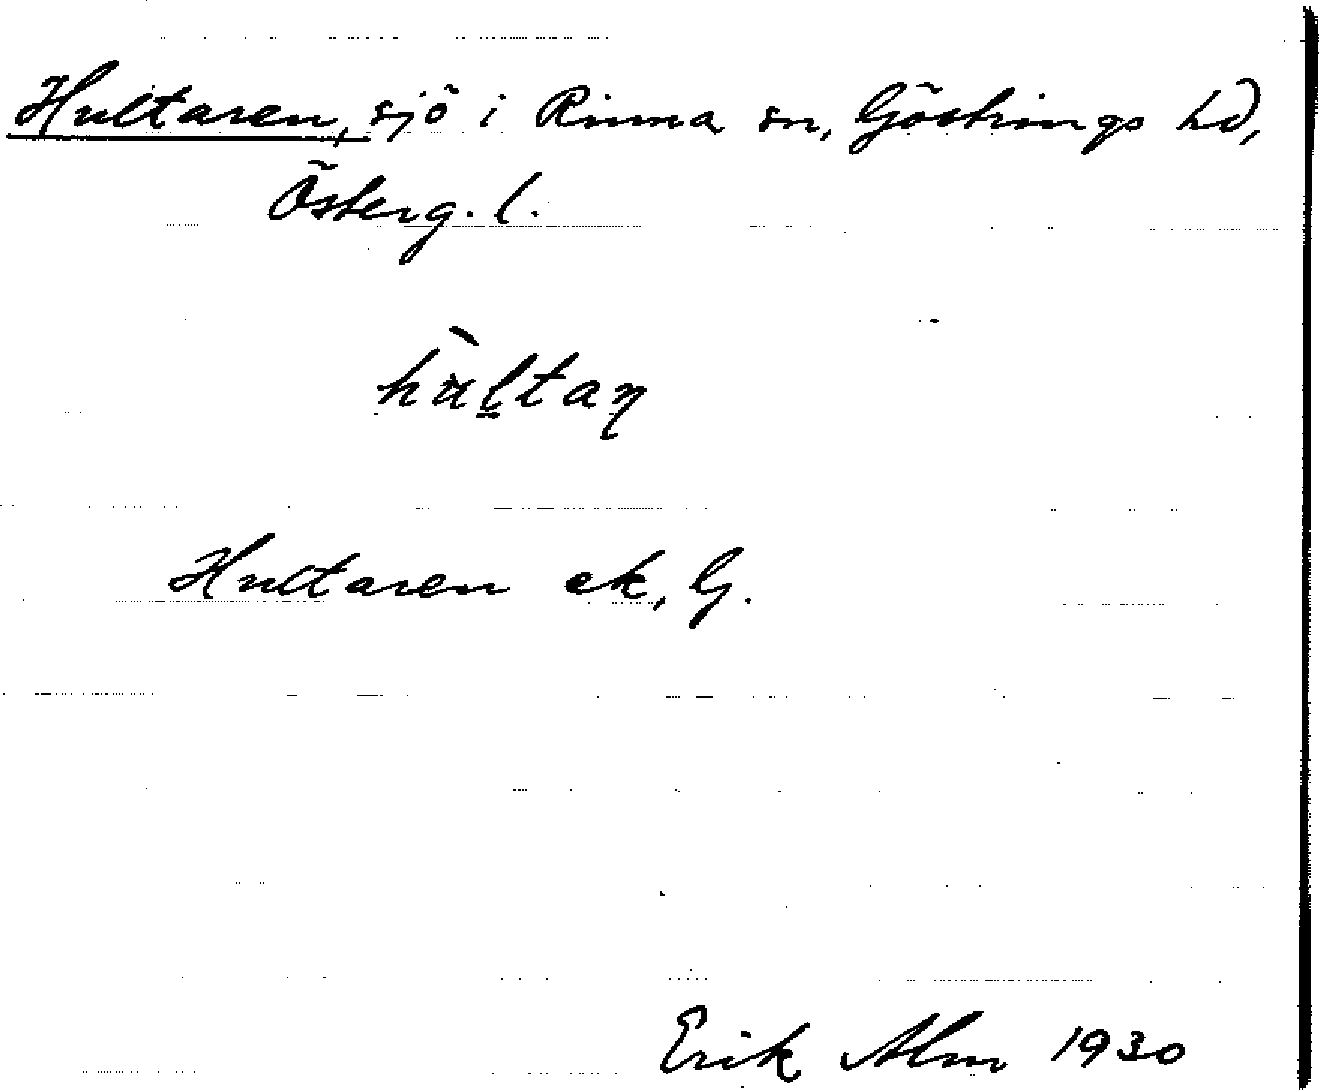 Hultaren, sjö i Rinna sn, Göstrings hd,
Österg. l.
Hultaren ek, G.
Erik Alm 1930